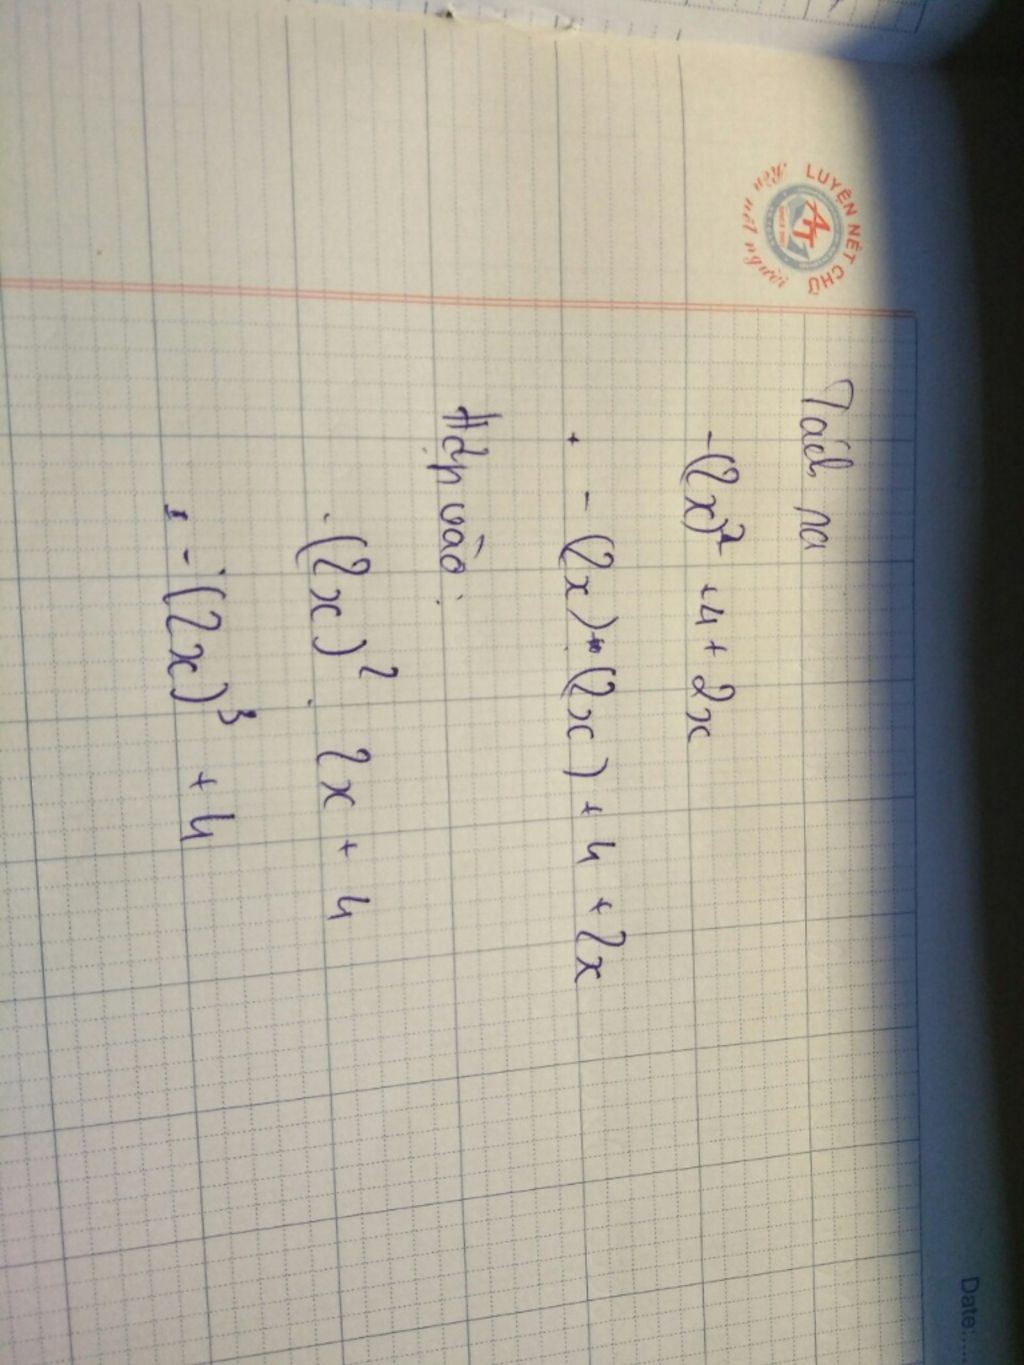 LUYỆN NÉT CHỮ
Rèn nết người
AT
Tách ra
-(2x)² +4 + 2x
+ - (2x) + (2x) + 4 + 2x
Hợp vào:
. (2x)² . 2x + 4
: - (2x)³ + 4
Date:......